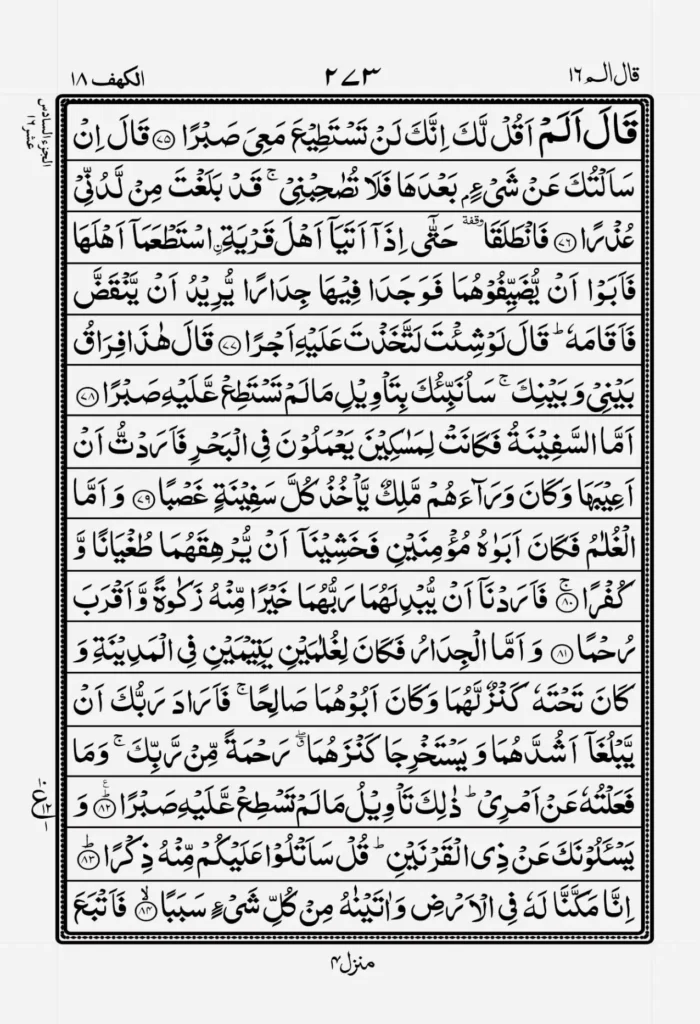 قال الم ١٦
٢٧٣
الكهف ١٨
الجزء السادس عشر ١٦
قَالَ اَلَمۡ اَقُلْ لَّكَ اِنَّكَ لَنۡ تَسۡتَطِيۡعَ مَعِىَ صَبۡرًا ﴿۷۵﴾ قَالَ اِنۡ
سَاَلۡتُكَ عَنۡ شَىۡءٍۢ بَعۡدَهَا فَلَا تُصٰحِبۡنِىۡ‌ ۚ قَدۡ بَلَغۡتَ مِنۡ لَّدُنِّىۡ
عُذۡرًا ﴿۷۶﴾ فَانْطَلَقَا وقفة حَتّٰۤى اِذَاۤ اَتَيَاۤ اَهۡلَ قَرۡيَةِ ۨاسۡتَطۡعَمَاۤ اَهۡلَهَا
فَاَبَوۡا اَنۡ يُّضَيِّفُوۡهُمَا فَوَجَدَا فِيۡهَا جِدَارًا يُّرِيۡدُ اَنۡ يَّنۡقَضَّ
فَاَقَامَهٗ‌ ؕ قَالَ لَوۡ شِئۡتَ لَتَّخَذۡتَ عَلَيۡهِ اَجۡرًا ﴿۷۷﴾ قَالَ هٰذَا فِرَاقُ
بَيۡنِىۡ وَبَيۡنِكَ‌ ۚ سَاُنَبِّئُكَ بِتَاۡوِيۡلِ مَا لَمۡ تَسۡتَطِعْ عَّلَيۡهِ صَبۡرًا ﴿۷۸﴾
اَمَّا السَّفِيۡنَةُ فَكَانَتۡ لِمَسٰكِيۡنَ يَعۡمَلُوۡنَ فِى الۡبَحۡرِ فَاَرَدْتُّ اَنۡ
اَعِيۡبَهَا وَكَانَ وَرَآءَهُمۡ مَّلِكٌ يَّاۡخُذُ كُلَّ سَفِيۡنَةٍ غَصۡبًا ﴿۷۹﴾ وَاَمَّا
الۡغُلٰمُ فَكَانَ اَبَوٰهُ مُؤۡمِنَيۡنِ فَخَشِيۡنَاۤ اَنۡ يُّرۡهِقَهُمَا طُغۡيَانًا وَّ
كُفۡرًا ۚ‏ ﴿۸۰﴾ فَاَرَدۡنَاۤ اَنۡ يُّبۡدِلَهُمَا رَبُّهُمَا خَيۡرًا مِّنۡهُ زَكٰوةً وَّاَقۡرَبَ
رُحۡمًا ﴿۸۱﴾ وَاَمَّا الۡجِدَارُ فَكَانَ لِغُلٰمَيۡنِ يَتِيۡمَيۡنِ فِى الۡمَدِيۡنَةِ وَ
كَانَ تَحۡتَهٗ كَنۡزٌ لَّهُمَا وَكَانَ اَبُوۡهُمَا صَالِحًـا‌ ۚ فَاَرَادَ رَبُّكَ اَنۡ
يَّبۡلُغَاۤ اَشُدَّهُمَا وَيَسۡتَخۡرِجَا كَنۡزَهُمَا ۖ ق رَحۡمَةً مِّنۡ رَّبِّكَ‌‌ ۚ وَمَا
فَعَلۡتُهٗ عَنۡ اَمۡرِىۡ‌ ؕ ذٰ لِكَ تَاۡوِيۡلُ مَا لَمۡ تَسۡطِعْ عَّلَيۡهِ صَبۡرًا ؕ ﴿۸۲﴾ وَ
يَسۡــَٔلُوۡنَكَ عَنۡ ذِى الۡقَرۡنَيۡنِ‌ ؕ قُلۡ سَاَتۡلُوۡا عَلَيۡكُمۡ مِّنۡهُ ذِكۡرًا ؕ ﴿۸۳﴾
اِنَّا مَكَّنَّا لَهٗ فِى الۡاَرۡضِ وَاٰتَيۡنٰهُ مِنۡ كُلِّ شَىۡءٍ سَبَبًا ۙ ﴿۸۴﴾ فَاَتۡبَعَ
منزل ۴